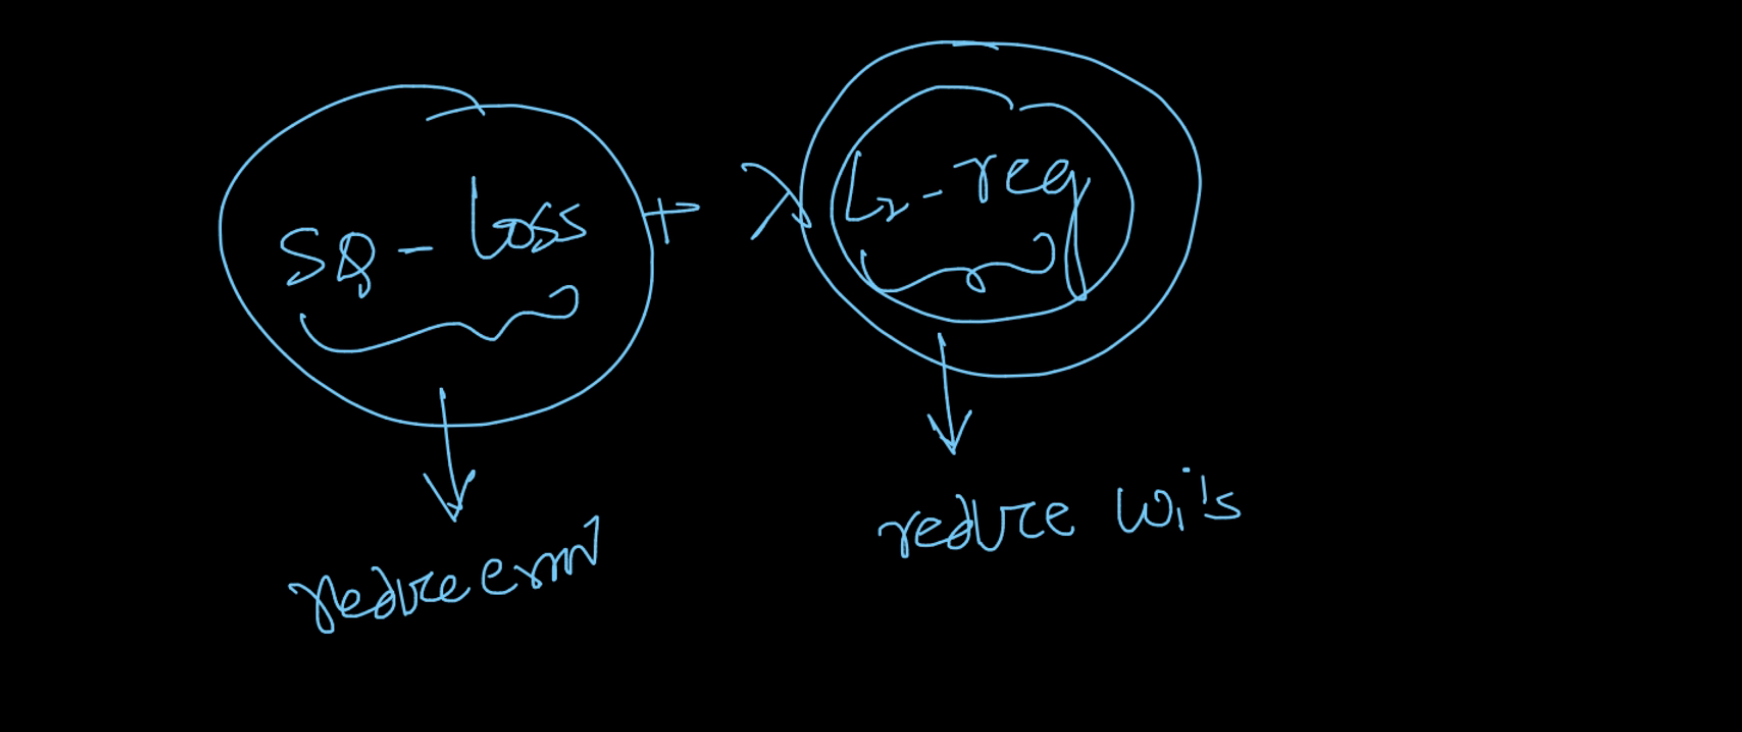 SQ - loss + λ L2 - reg
reduce error
reduce wi's